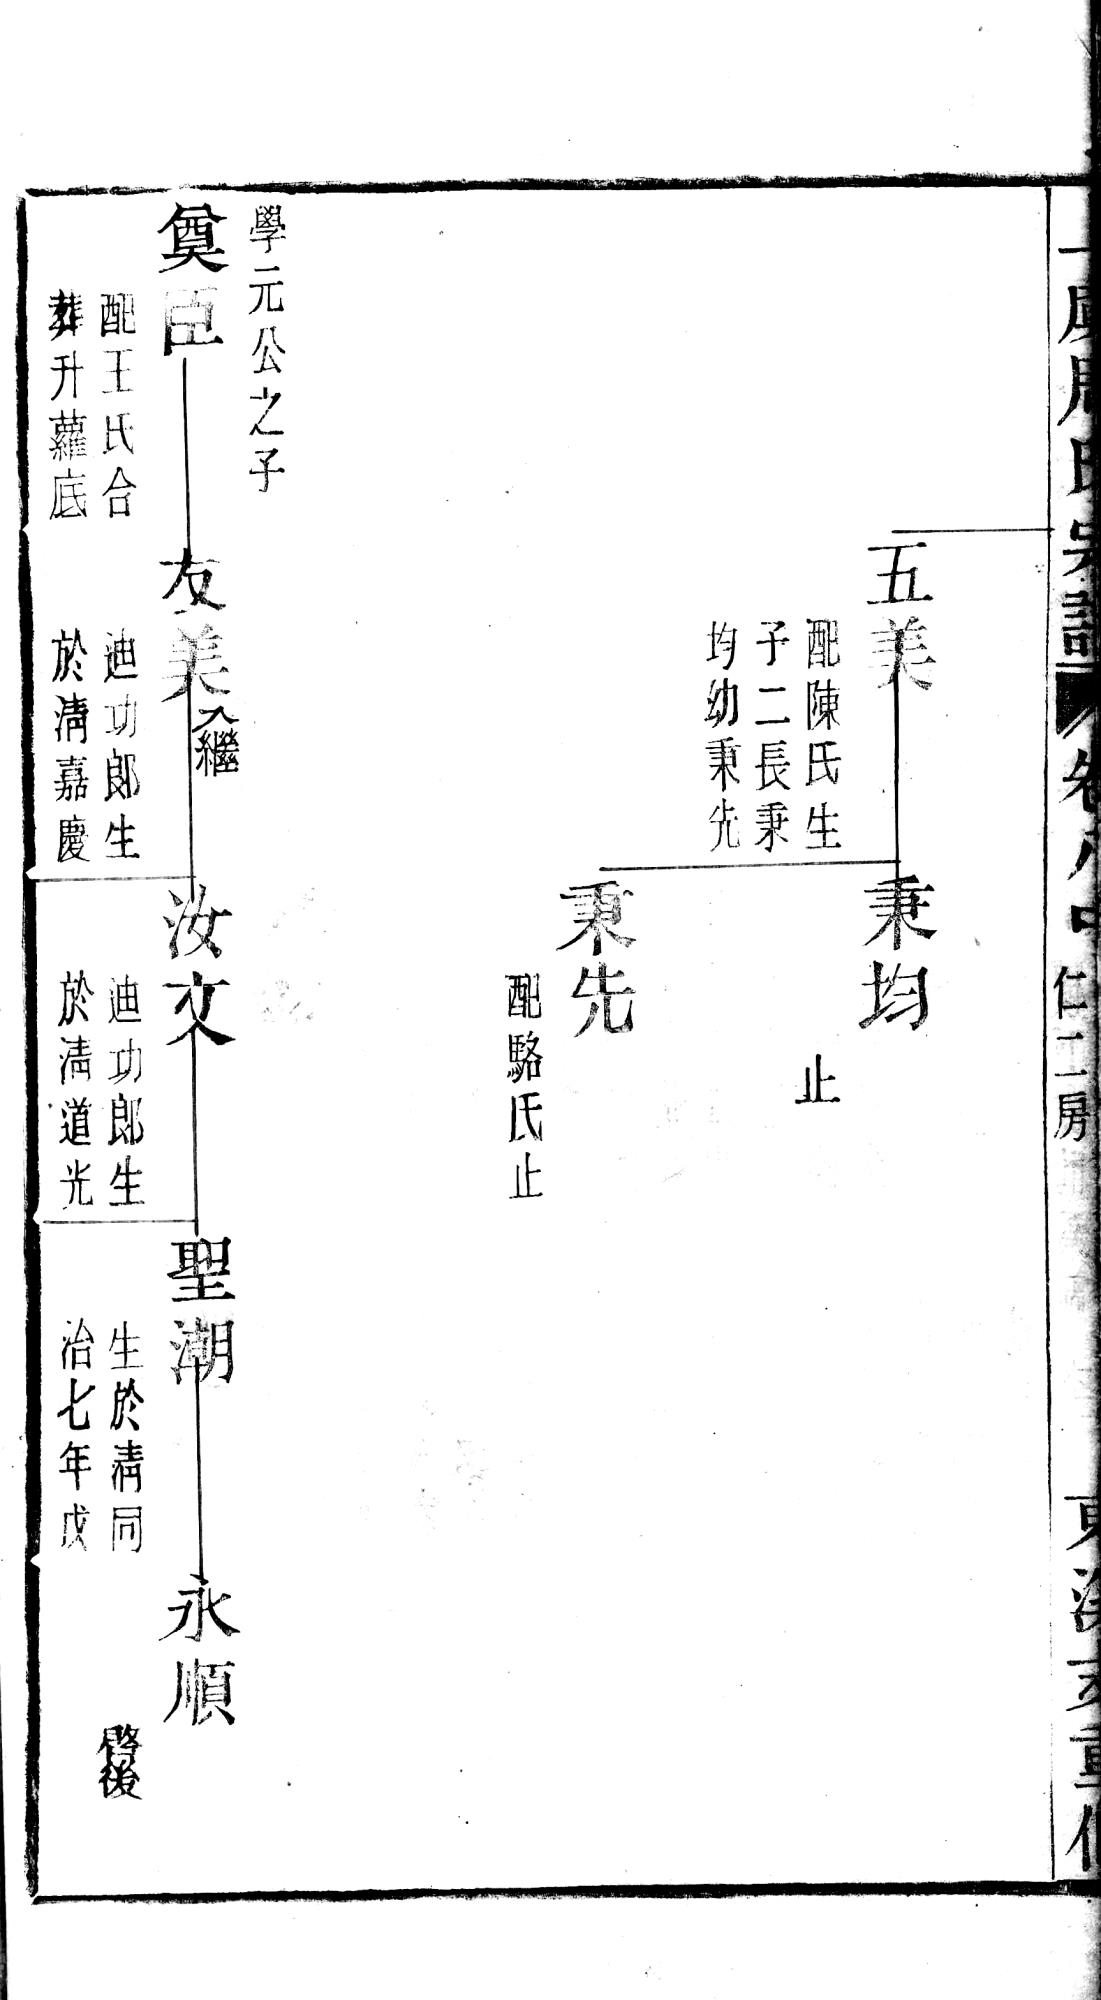 周氏宗譜
卷八中
仁二房
重修
五美
配陳氏生
子二長秉
均幼秉先
秉均
止
秉先
配駱氏止
學元公之子
奠臣
配王氏合
葬升蘿底
友美
入繼
迪功郎生
於清嘉慶
汝文
迪功郎生
於清道光
聖潮
生於清同
治七年戊
永順
啓後